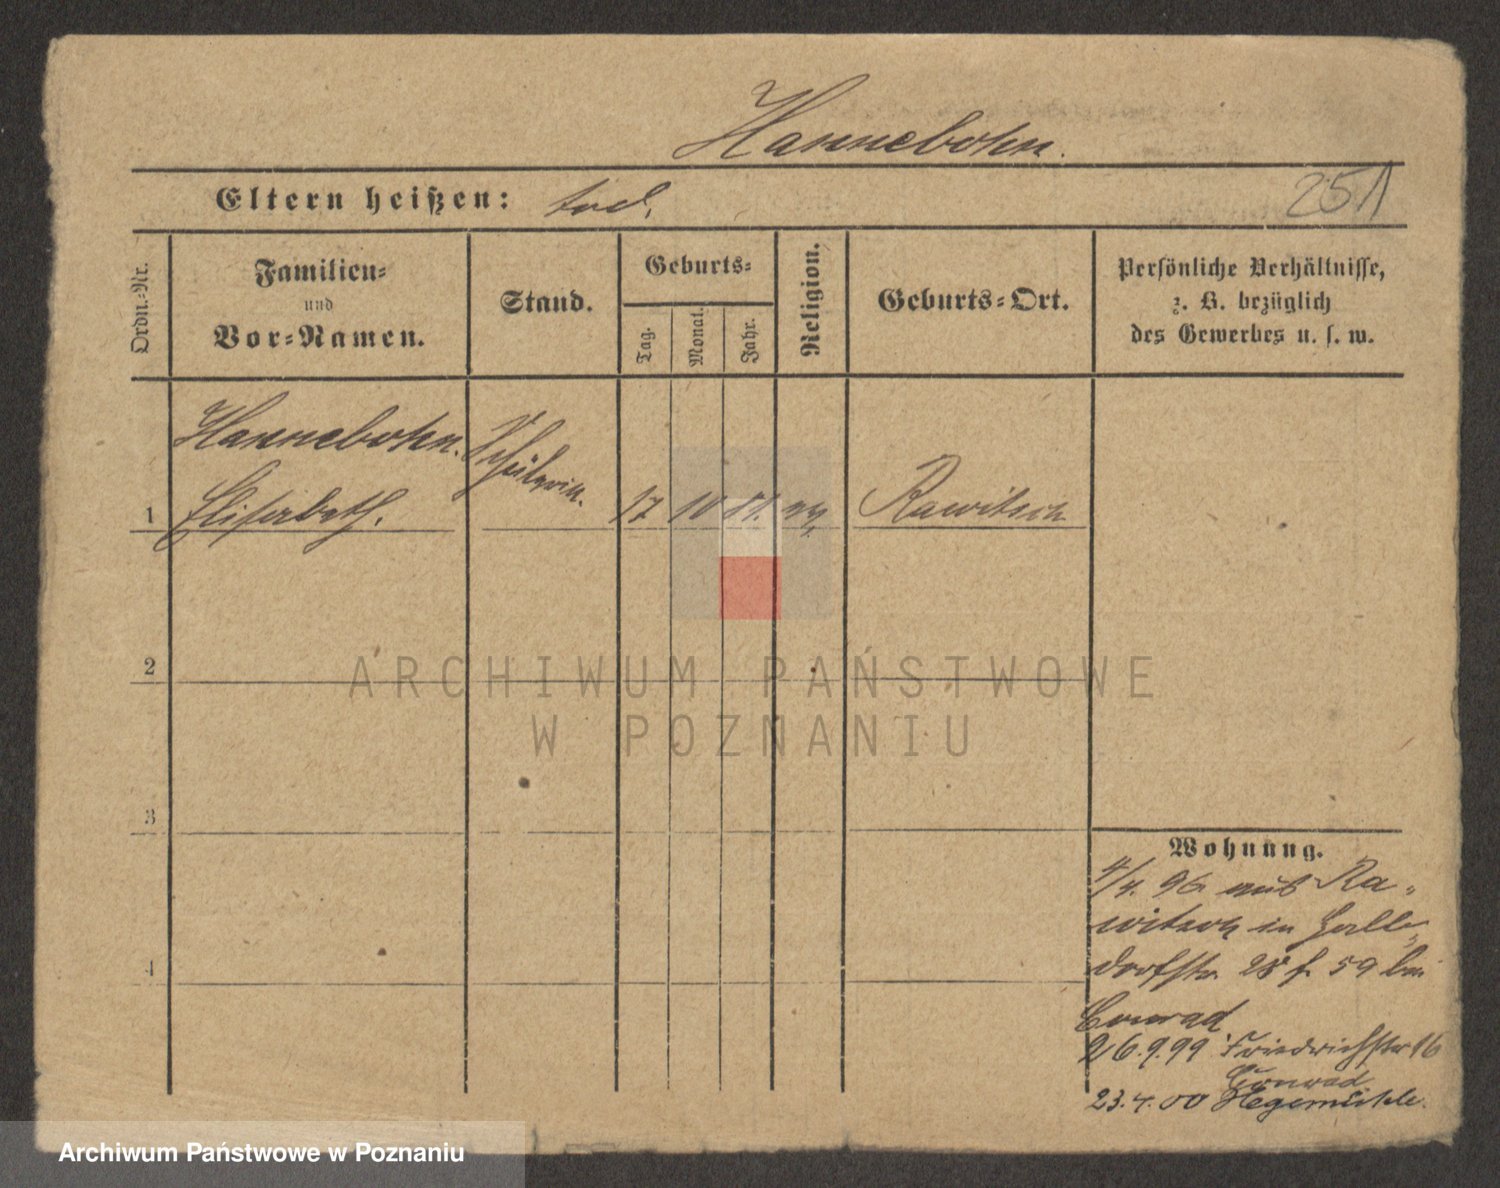 Hannebohn.
Eltern heißen: tod.
251
Ordn.-Nr.
Familien-
und
Vor-Namen.
Stand.
Geburts-
Tag.
Monat.
Jahr.
Religion.
Geburts-Ort.
Persönliche Verhältnisse,
z. B. bezüglich
des Gewerbes u. s. w.
Hannebohn.
Schülerin.
1
Elisabeth.
17
10
81.
ev.
Rawitsch
2
ARCHIWUM PAŃSTWOWE
W POZNANIU
3
4
Wohnung.
4/4. 96. aus Ra-
witsch in Halle-
dorfstr. 28 f. 59 bei
Conrad
26.9.99 Friedrichstr 16
Conrad
23.4.00 Hegemühle.
Archiwum Państwowe w Poznaniu